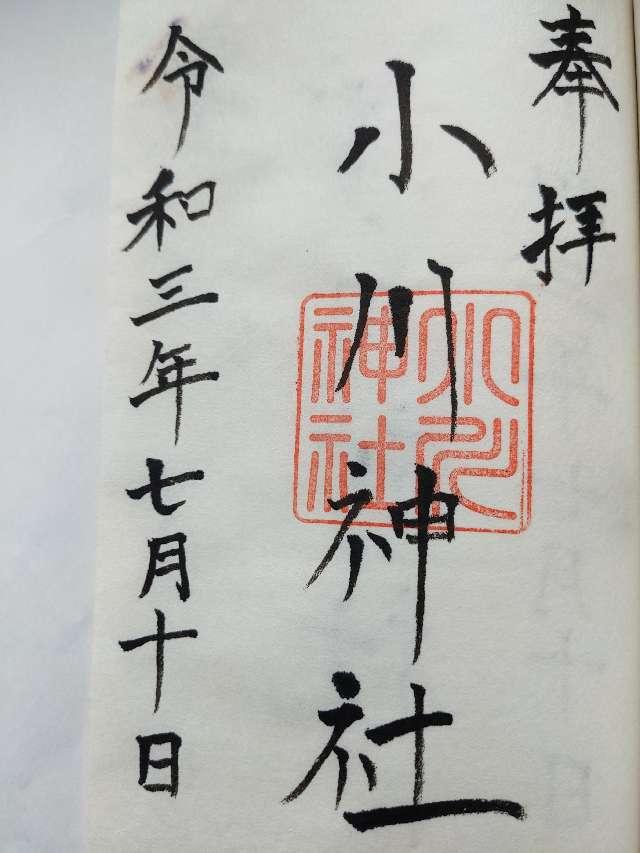 奉拝
小川神社
小川神社
令和三年七月十日